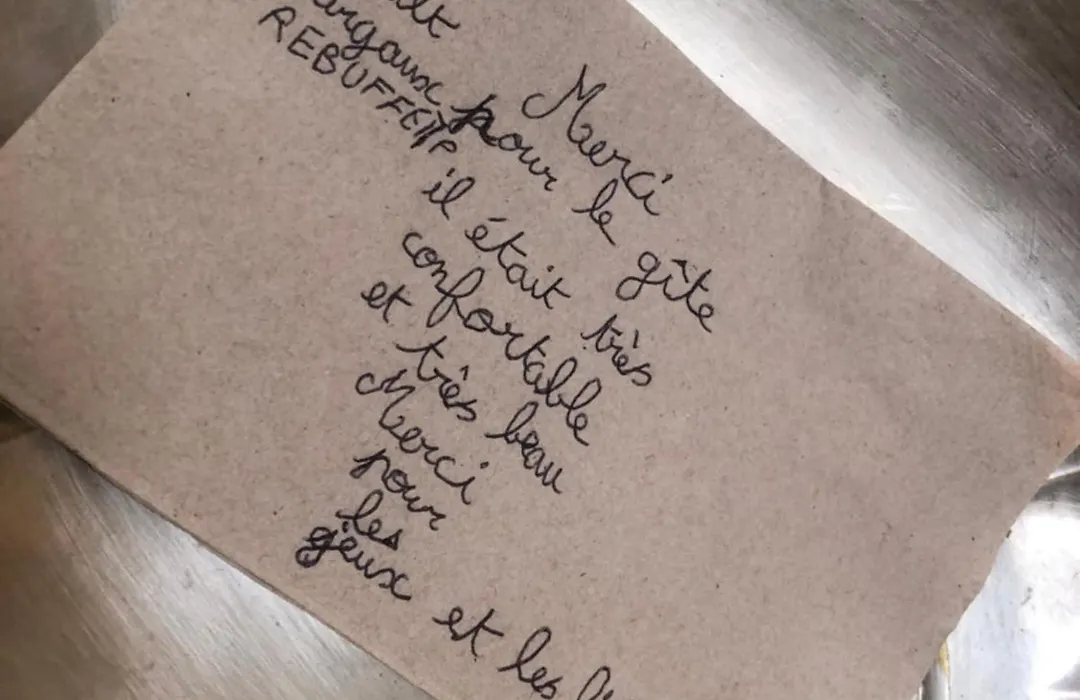 argaux
Merci
pour le gîte
il était très
confortable
et très beau
Merci
pour
les
jeux et les